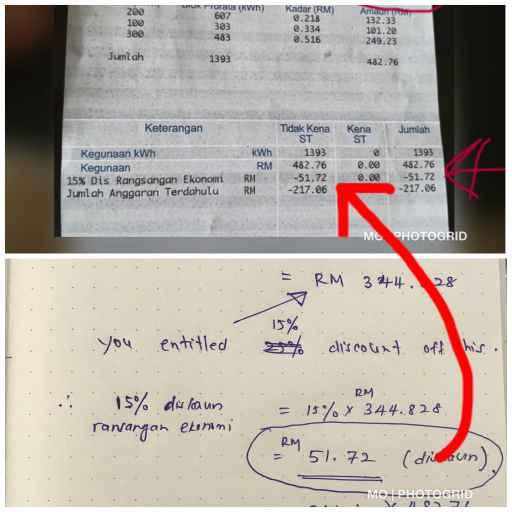 Blok Prorata (kWh) Kadar (RM) Amaun (RM)
200 607 0.218 132.33
100 303 0.334 101.20
300 483 0.516 249.23
Jumlah 1393 482.76
Keterangan Tidak Kena ST Kena ST Jumlah
Kegunaan kWh kWh 1393 0 1393
Kegunaan RM 482.76 0.00 482.76
15% Dis Rangsangan Ekonomi RM -51.72 0.00 -51.72
Jumlah Anggaran Terdahulu RM -217.06 -217.06
MO | PHOTOGRID
= RM 344.828
15%
you entitled 25% discount off this.
∴ 15% diskaun = 15% x RM 344.828
ransangan ekonomi
= RM 51.72 (diskaun)
MO | PHOTOGRID